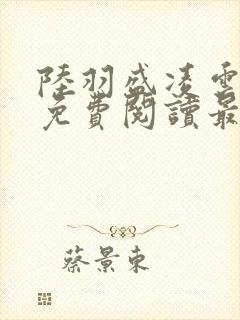 陸羽盛凌雲
免費閱讀最
蔡景東